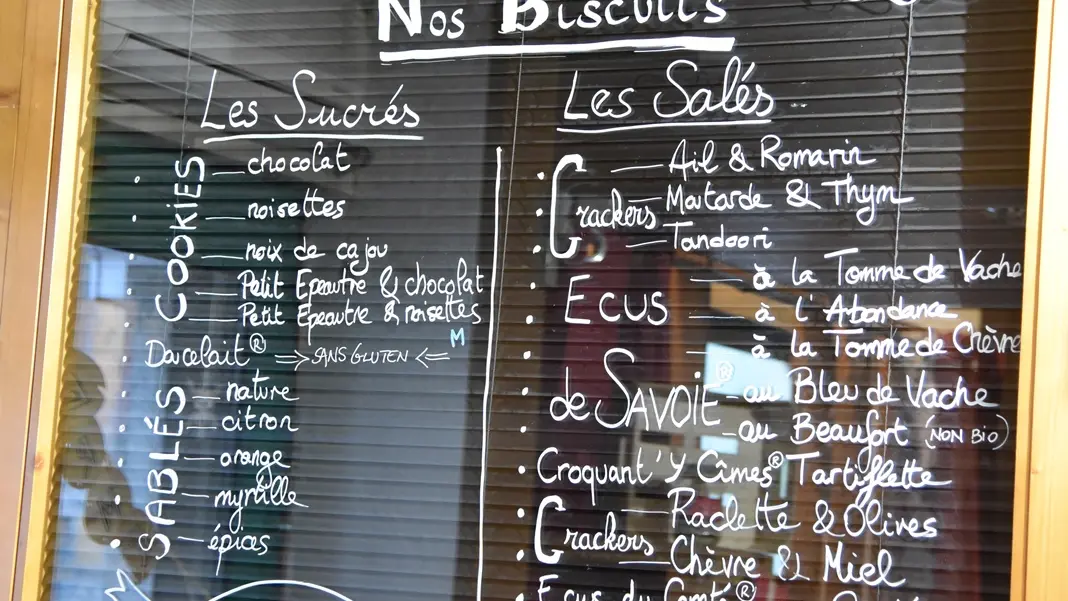 Nos Biscuits
Les Sucrés
COOKIES
chocolat
noisettes
noix de cajou
Petit Epeautre & chocolat
Petit Epeautre & noisettes
M
Dacelait® => SANS GLUTEN <=
SABLÉS
nature
citron
orange
myrtille
épices
Les Salés ..
Crackers
Ail & Romarin
Moutarde & Thym
Tandoori
ECUS
de SAVOIE®
à la Tomme de Vache
à l'Abondance
à la Tomme de Chèvre
au Bleu de Vache
au Beaufort (NON BIO)
Croquant'Y Cîmes® Tartiflette
Crackers
Raclette & Olives
Chèvre & Miel
Ecus du Comté®